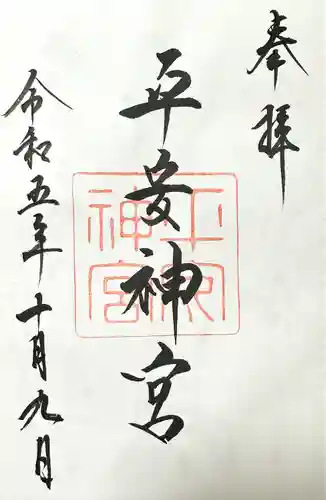 奉拝
平安神宮
神宮
令和五年十月九日